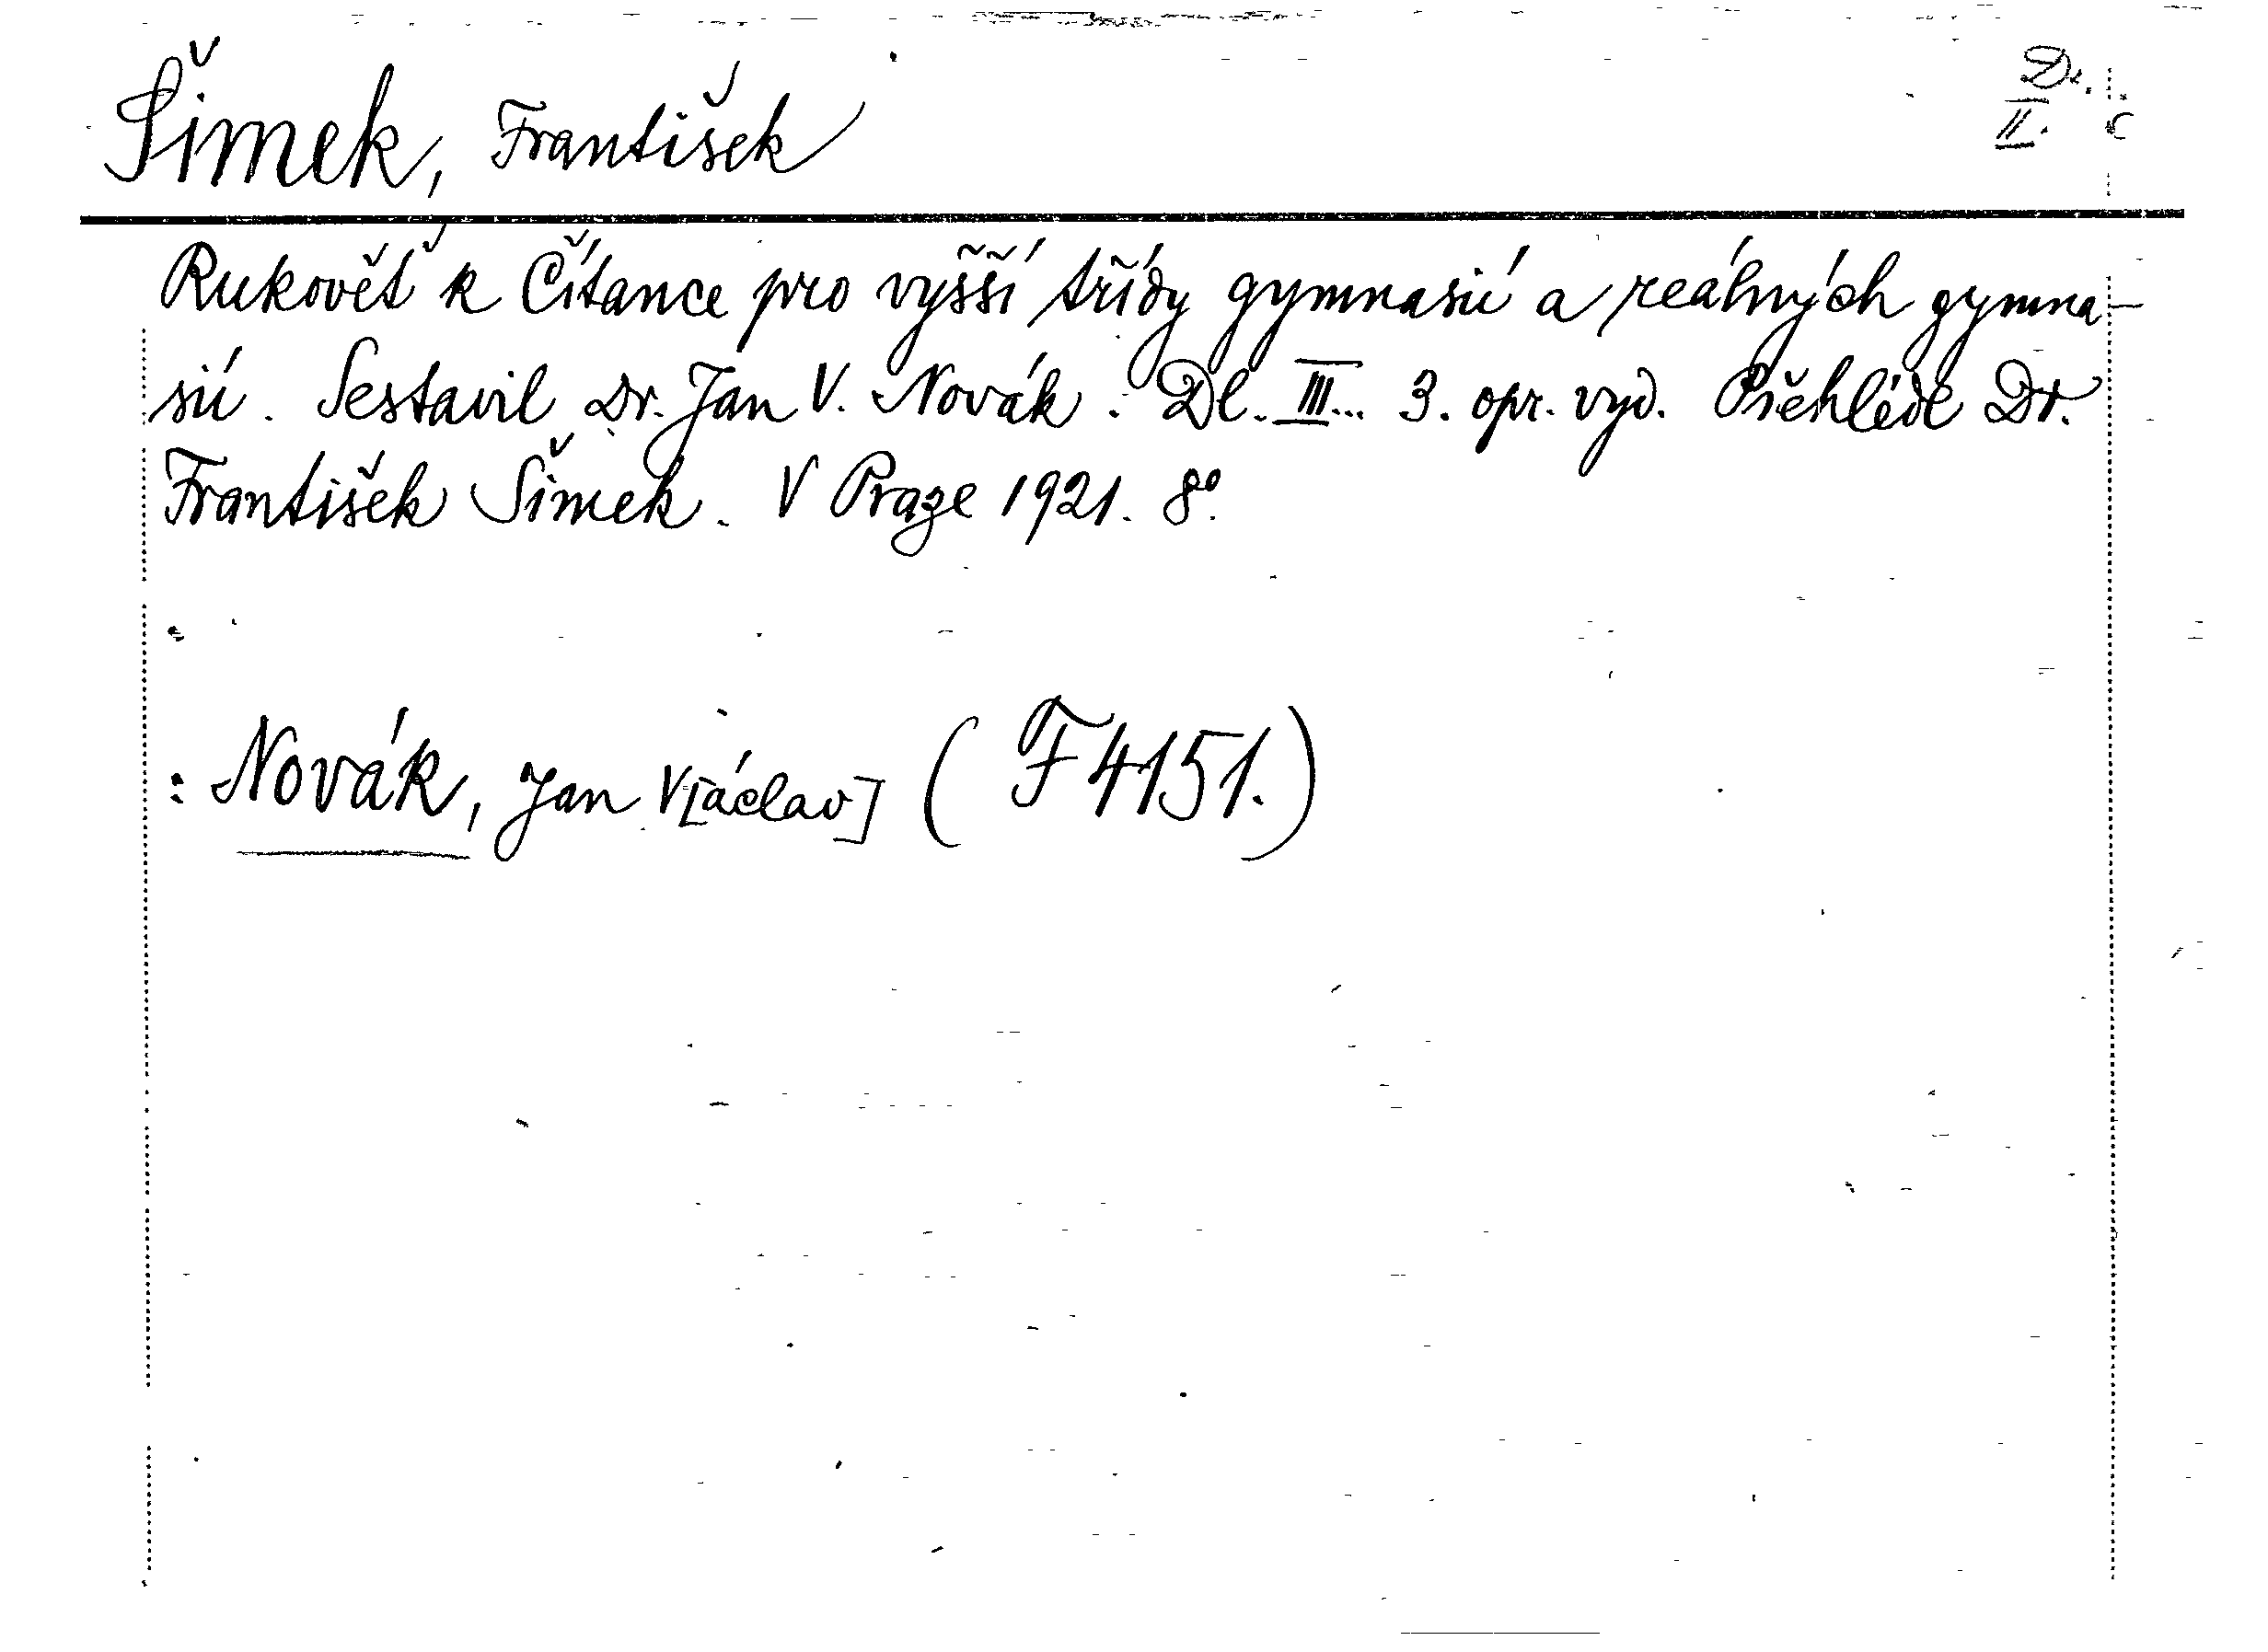 Šimek, František
Dr.
II. c
Rukověť k Čítance pro vyšší třídy gymnasií a reálných gymna-
sií. Sestavil Dr. Jan V. Novák. Dl. III... 3. opr. vyd. Přehlédl Dr.
František Šimek. V Praze 1921. 8°.
: Novák, Jan V[áclav] (F 4151.)